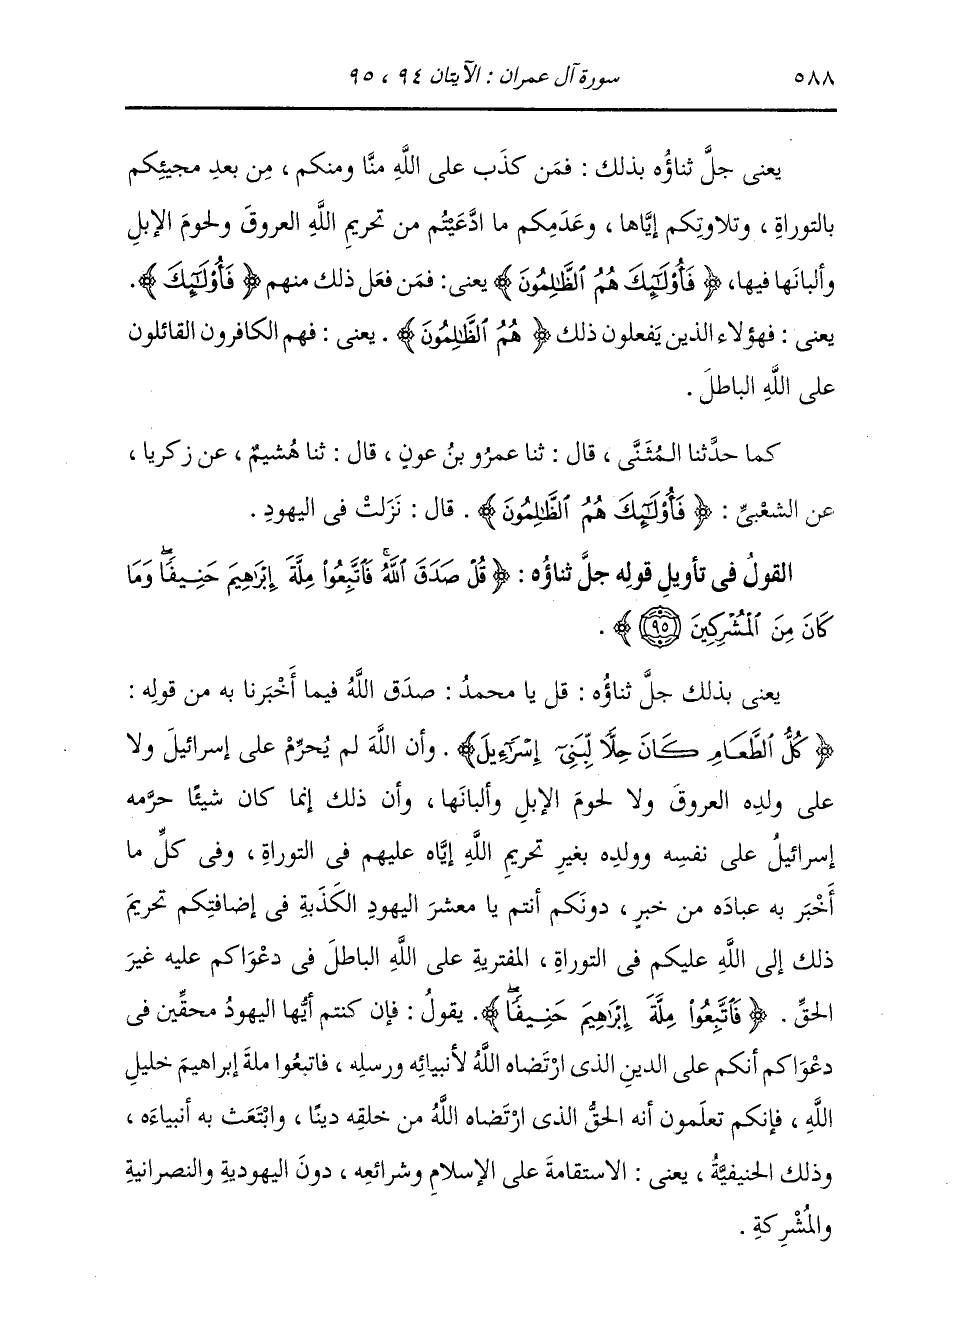 ٥٨٨ سورة آل عمران : الآيتان ٩٤ ، ٩٥
يعنى جلَّ ثناؤُه بذلك : فمَن كذَب على اللَّهِ منَّا ومنكم ، مِن بعدِ مجيئِكم
بالتوراةِ ، وتلاوتِكم إيَّاها ، وعَدَمِكم ما ادَّعَيْتُم من تحريمِ اللَّهِ العروقَ ولحومَ الإبلِ
وألبانَها فيها، ﴿ فَأُوْلَٰٓئِكَ هُمُ ٱلظَّٰلِمُونَ ﴾ يعنى: فمَن فعَل ذلك منهم ﴿ فَأُوْلَٰٓئِكَ ﴾.
يعنى : فهؤلاء الذين يَفعلون ذلك ﴿ هُمُ ٱلظَّٰلِمُونَ ﴾ . يعنى : فهم الكافرون القائلون
على اللَّهِ الباطلَ .
كما حدَّثنا المُثَنَّى ، قال : ثنا عمرُو بنُ عونٍ ، قال : ثنا هُشيمٌ ، عن زكريا ،
عن الشعْبىِّ : ﴿ فَأُوْلَٰٓئِكَ هُمُ ٱلظَّٰلِمُونَ ﴾ . قال : نزَلتْ فى اليهودِ .
القولُ فى تأويلِ قولِه جلَّ ثناؤُه : ﴿ قُلْ صَدَقَ ٱللَّهُۗ فَٱتَّبِعُوا۟ مِلَّةَ إِبْرَٰهِيمَ حَنِيفًاۖ وَمَا
كَانَ مِنَ ٱلْمُشْرِكِينَ ٩٥ ﴾ .
يعنى بذلك جلَّ ثناؤُه : قل يا محمدُ : صدَق اللَّهُ فيما أَخْبَرنا به من قولِه :
﴿ كُلُّ ٱلطَّعَامِ كَانَ حِلًّا لِّبَنِىٓ إِسْرَٰٓءِيلَ﴾ . وأن اللَّهَ لم يُحرِّمْ على إسرائيلَ ولا
على ولدِه العروقَ ولا لحومَ الإبلِ وألبانَها ، وأن ذلك إنما كان شيئًا حرَّمه
إسرائيلُ على نفسِه وولدِه بغيرِ تحريمِ اللَّهِ إيَّاه عليهم فى التوراةِ ، وفى كلِّ ما
أَخْبَر به عبادَه من خبرٍ ، دونَكم أنتم يا معشرَ اليهودِ الكَذَبةِ فى إضافتِكم تحريمَ
ذلك إلى اللَّهِ عليكم فى التوراةِ ، المفتريةِ على اللَّهِ الباطلَ فى دعْوَاكم عليه غيرَ
الحقِّ . ﴿ فَٱتَّبِعُوا۟ مِلَّةَ إِبْرَٰهِيمَ حَنِيفًاۖ ﴾. يقولُ : فإن كنتم أيُّها اليهودُ محقِّين فى
دعْوَاكم أنكم على الدينِ الذى ارْتَضاه اللَّهُ لأنبيائِه ورسلِه ، فاتبعُوا ملةَ إبراهيمَ خليلِ
اللَّهِ ، فإنكم تعلَمون أنه الحقُّ الذى ارْتَضاه اللَّهُ من خلقِه دينًا ، وابْتَعَث به أنبياءَه ،
وذلك الحنيفيَّةُ ، يعنى : الاستقامةَ على الإسلامِ وشرائعِه ، دونَ اليهوديةِ والنصرانيةِ
والمُشْرِكةِ .